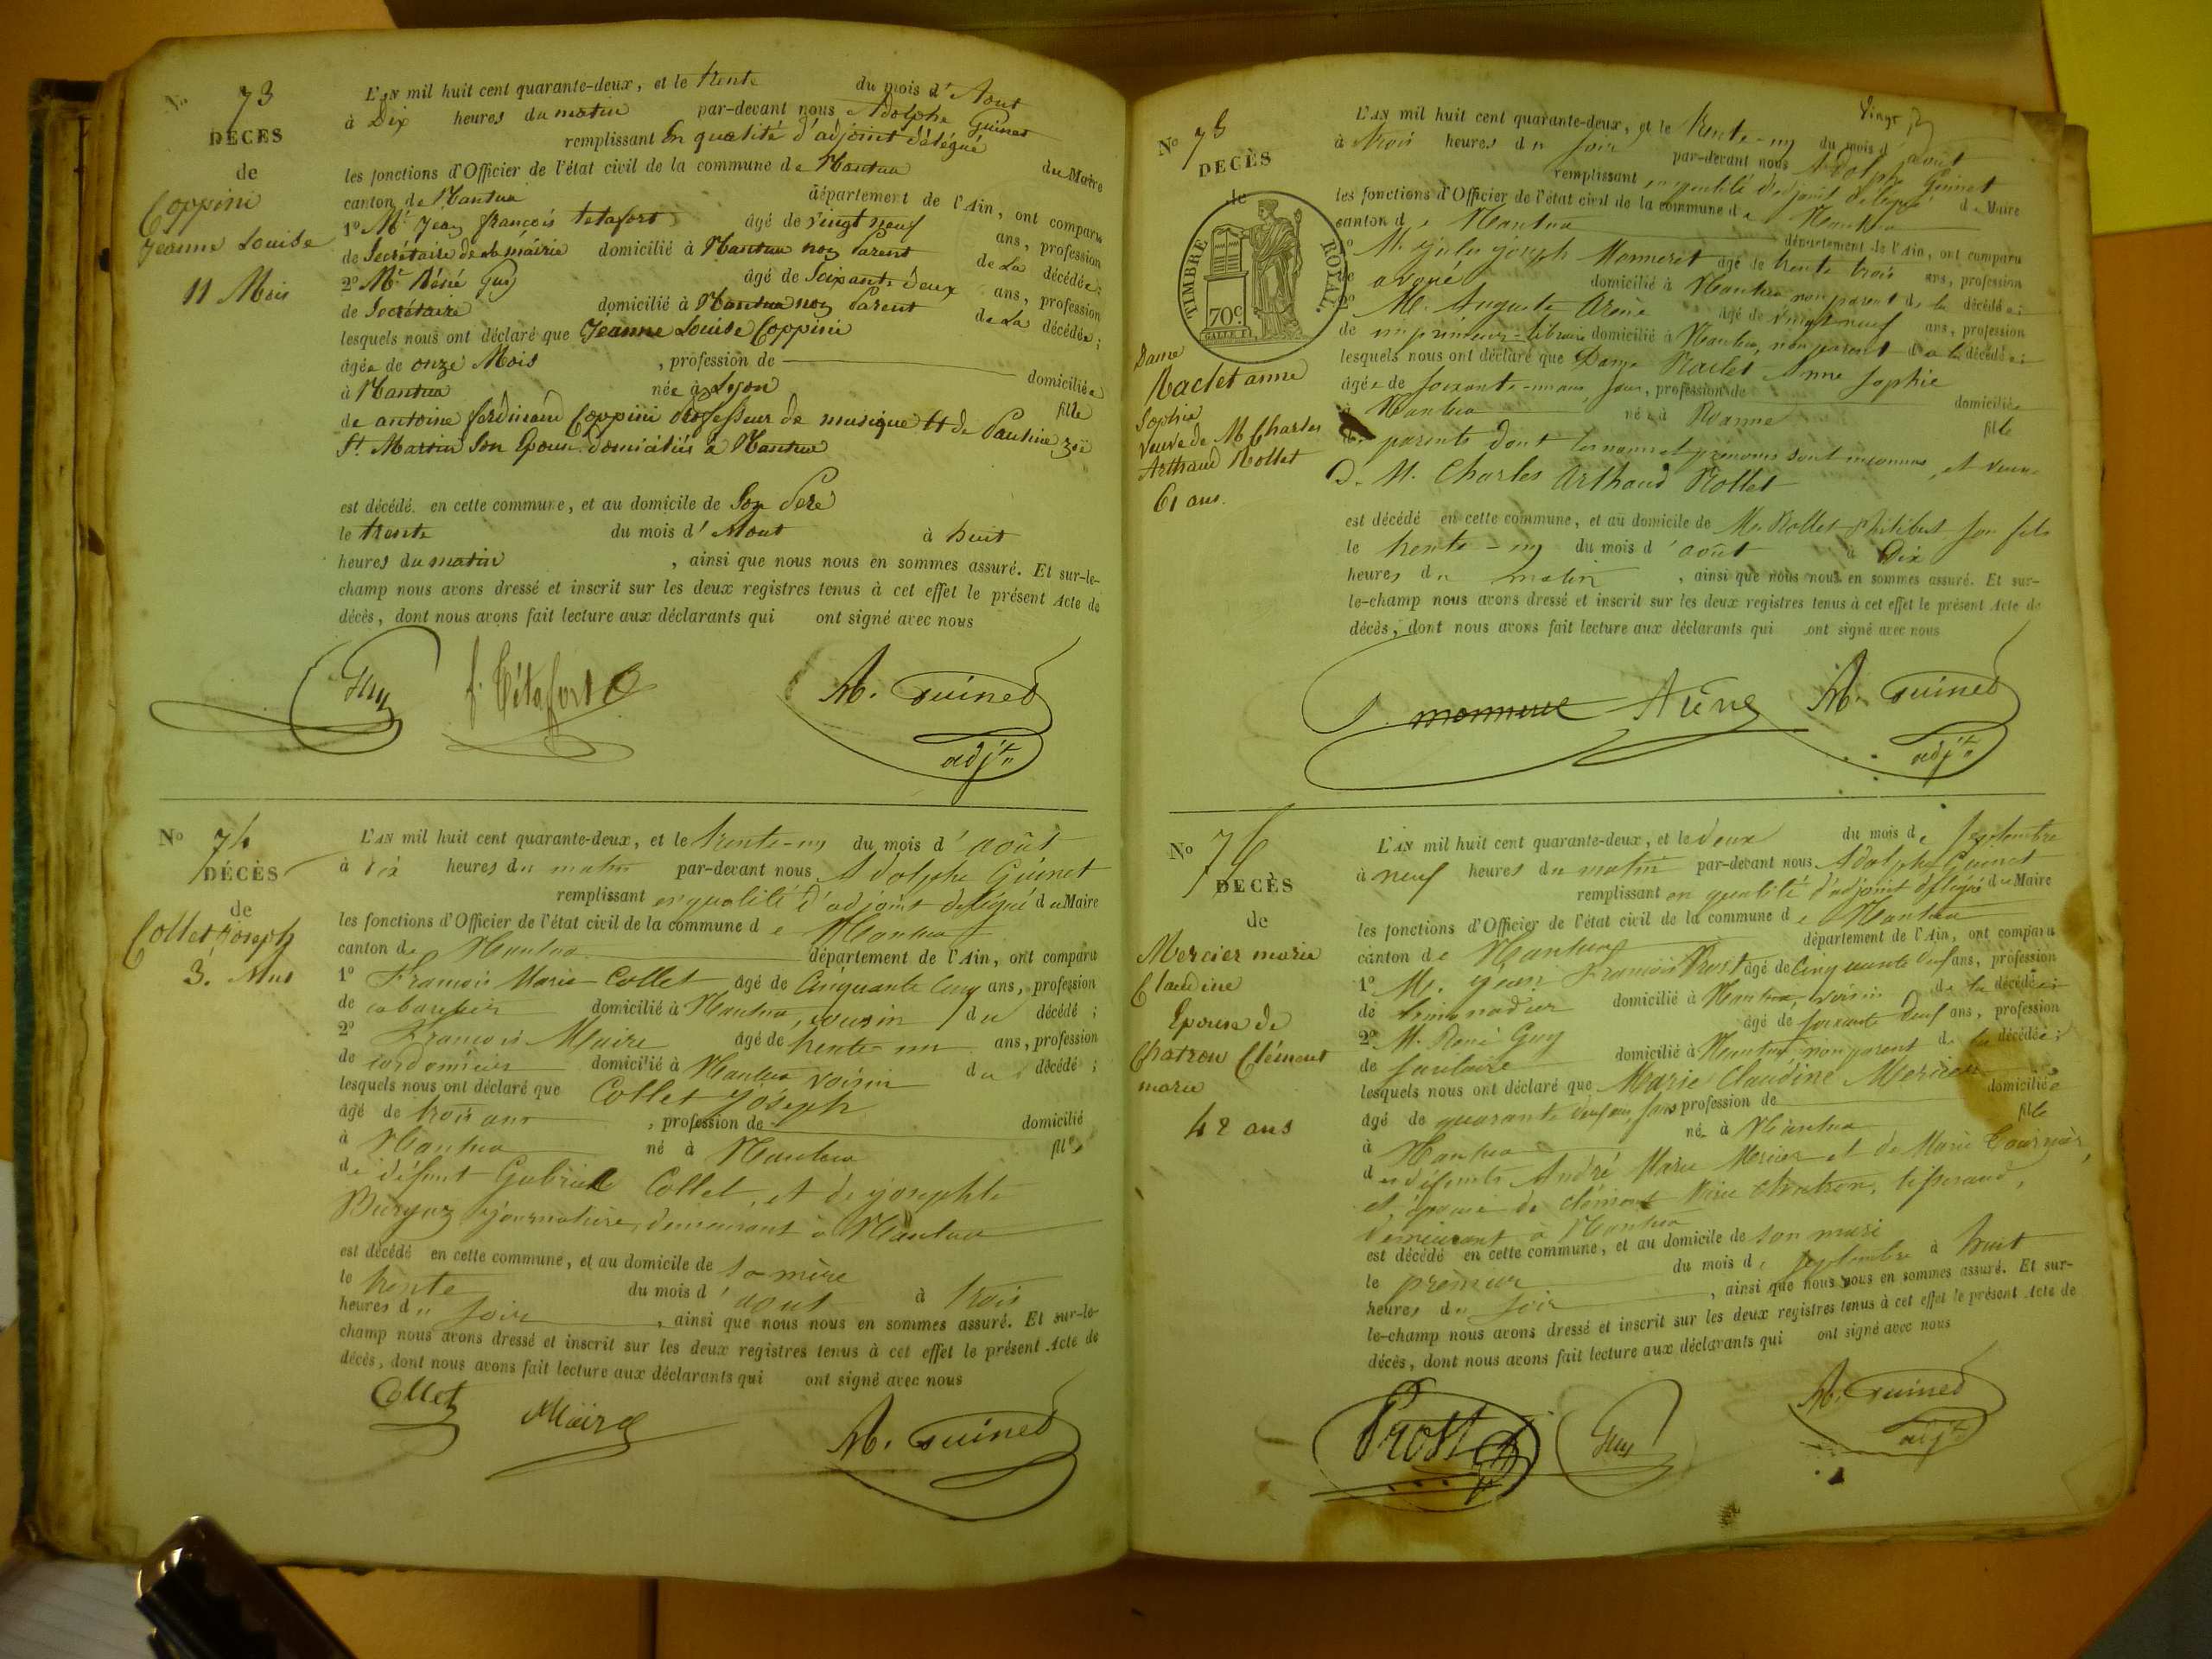 No 73
DÉCÈS
de
Coppini
Jeanne Louise
11 Mois
L'AN mil huit cent quarante-deux, et le trente du mois d'Aout
à Dix heures du matin par-devant nous Adolphe Guinet
remplissant En qualité d'adjoint délégué du Maire
les fonctions d'Officier de l'état civil de la commune de Nantua
canton de Nantua département de l'Ain, ont comparu
1º Mr. Jean françois tetafort âgé de vingt neuf ans, profession
de Secrétaire de la mairie domicilié à Nantua non Parent de La décédée;
2º Mr. Réné Guy âgé de Soixante deux ans, profession
de Secrétaire domicilié à Nantua non Parent de La décédée;
lesquels nous ont déclaré que Jeanne Louise Coppini
âgée de onze Mois , profession de domiciliée
à Nantua née à Lyon fille
de antoine ferdinand Coppini professeur de musique et de Pauline zoé
St. Martin Son Epouse domiciliés à Nantua
est décédé en cette commune, et au domicile de Son Père
le trente du mois d'Aout à huit
heures du matin , ainsi que nous nous en sommes assuré. Et sur-le-
champ nous avons dressé et inscrit sur les deux registres tenus à cet effet le présent Acte de
décès, dont nous avons fait lecture aux déclarants qui ont signé avec nous
Guy f. Tétafort A. Guinet
adjt.
No 74
DÉCÈS
de
Collet Joseph
3. Ans
L'AN mil huit cent quarante-deux, et le trente-un du mois d'août
à dix heures du matin par-devant nous Adolphe Guinet
remplissant en qualité d'adjoint délégué du Maire
les fonctions d'Officier de l'état civil de la commune de Nantua
canton de Nantua département de l'Ain, ont comparu
1º François Marie Collet âgé de Cinquante Cinq ans, profession
de cabaretier domicilié à Nantua, cousin du décédé;
2º François Maire âgé de trente-un ans, profession
de cordonnier domicilié à Nantua voisin du décédé;
lesquels nous ont déclaré que Collet Joseph
âgé de trois ans , profession de domicilié
à Nantua né à Nantua fils
de défunt Gabriel Collet, et de josephte
journalière, demeurant à Nantua
est décédé en cette commune, et au domicile de sa mère
le trente du mois d'aout à trois
heures du soir , ainsi que nous nous en sommes assuré. Et sur-le-
champ nous avons dressé et inscrit sur les deux registres tenus à cet effet le présent Acte de
décès, dont nous avons fait lecture aux déclarants qui ont signé avec nous
Collet Maire A. Guinet
No 75
DÉCÈS
de
TIMBRE ROYAL.
70c.
Dame
Raclet anne
Sophie
veuve de M Charles
Arthaud Rollet
61 ans.
L'AN mil huit cent quarante-deux, et le trente-un du mois d'août
à trois heures du soir par-devant nous Adolphe Guinet
remplissant en qualité d'adjoint délégué du Maire
les fonctions d'Officier de l'état civil de la commune de Nantua
canton de Nantua département de l'Ain, ont comparu
1º M. jules joseph Monneret âgé de trente trois ans, profession
de avoué domicilié à Nantua non parent de la décédée;
2º M. Auguste Arène âgé de vingt neuf ans, profession
de imprimeur-libraire domicilié à Nantua, non parent de la décédée;
lesquels nous ont déclaré que Dame Raclet Anne Sophie
âgée de soixante-un ans, sans, profession de domiciliée
à Nantua née à Roanne fille
de parents dont les noms et prénoms sont inconnus, et veuve
D. M. Charles Arthaud Rollet
est décédé en cette commune, et au domicile de Mr. Rollet Philibert son fils
le trente-un du mois d'août à Dix
heures du matin , ainsi que nous nous en sommes assuré. Et sur-
le-champ nous avons dressé et inscrit sur les deux registres tenus à cet effet le présent Acte de
décès, dont nous avons fait lecture aux déclarants qui ont signé avec nous
Arène A. Guinet
adjt.
No 76
DÉCÈS
de
Mercier marie
Claudine
Epouse de
Chatron Clément
marie
42 ans
L'AN mil huit cent quarante-deux, et le deux du mois de septembre
à neuf heures du matin par-devant nous Adolphe Guinet
remplissant en qualité d'adjoint délégué du Maire
les fonctions d'Officier de l'état civil de la commune de Nantua
canton de Nantua département de l'Ain, ont comparu
1º M. jean François Prost âgé de Cinquante deux ans, profession
de limonadier domicilié à Nantua, voisin de la décédée;
2º M. René Guy âgé de soixante deux ans, profession
de domicilié à Nantua non parent de la décédée;
lesquels nous ont déclaré que Marie Claudine Mercier
âgé de quarante deux ans, sans profession de domiciliée
à Nantua née à Nantua fille
des défunts André Marie Mercier et de Marie
et épouse de clément Marie Chatron, tisserand,
demeurant à Nantua
est décédé en cette commune, et au domicile de son mari
le premier du mois de septembre à huit
heures du soir , ainsi que nous nous en sommes assuré. Et sur-
le-champ nous avons dressé et inscrit sur les deux registres tenus à cet effet le présent Acte de
décès, dont nous avons fait lecture aux déclarants qui ont signé avec nous
Prost Guy A. Guinet
adjt.